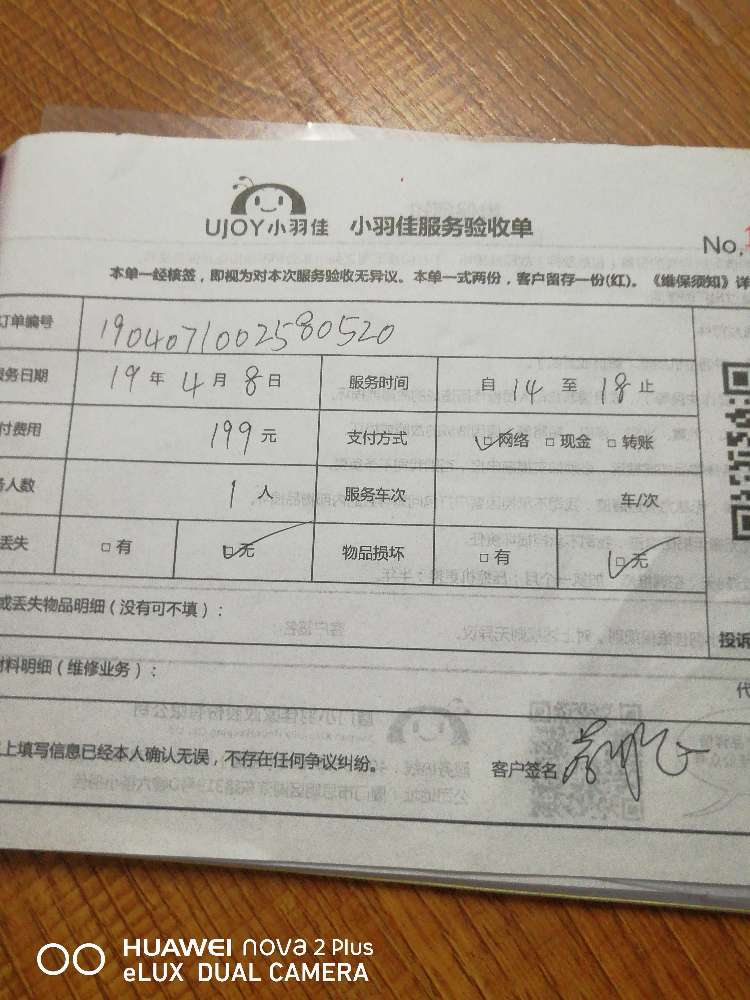 UJOY小羽佳 小羽佳服务验收单
No.
本单一经核签，即视为对本次服务验收无异议。本单一式两份，客户留存一份(红)。《维保须知》详
订单编号 1904071002580520
服务日期 19 年 4 月 8 日 服务时间 自 14 至 18 止
付费用 199 元 支付方式 ☑网络 □现金 □转账
务人数 1 人 服务车次 车/次
丢失 □有 ☑无 物品损坏 □有 ☑无
或丢失物品明细（没有可不填）：
投诉
材料明细（维修业务）：
代
上填写信息已经本人确认无误，不存在任何争议纠纷。 客户签名
HUAWEI nova 2 Plus
eLUX DUAL CAMERA